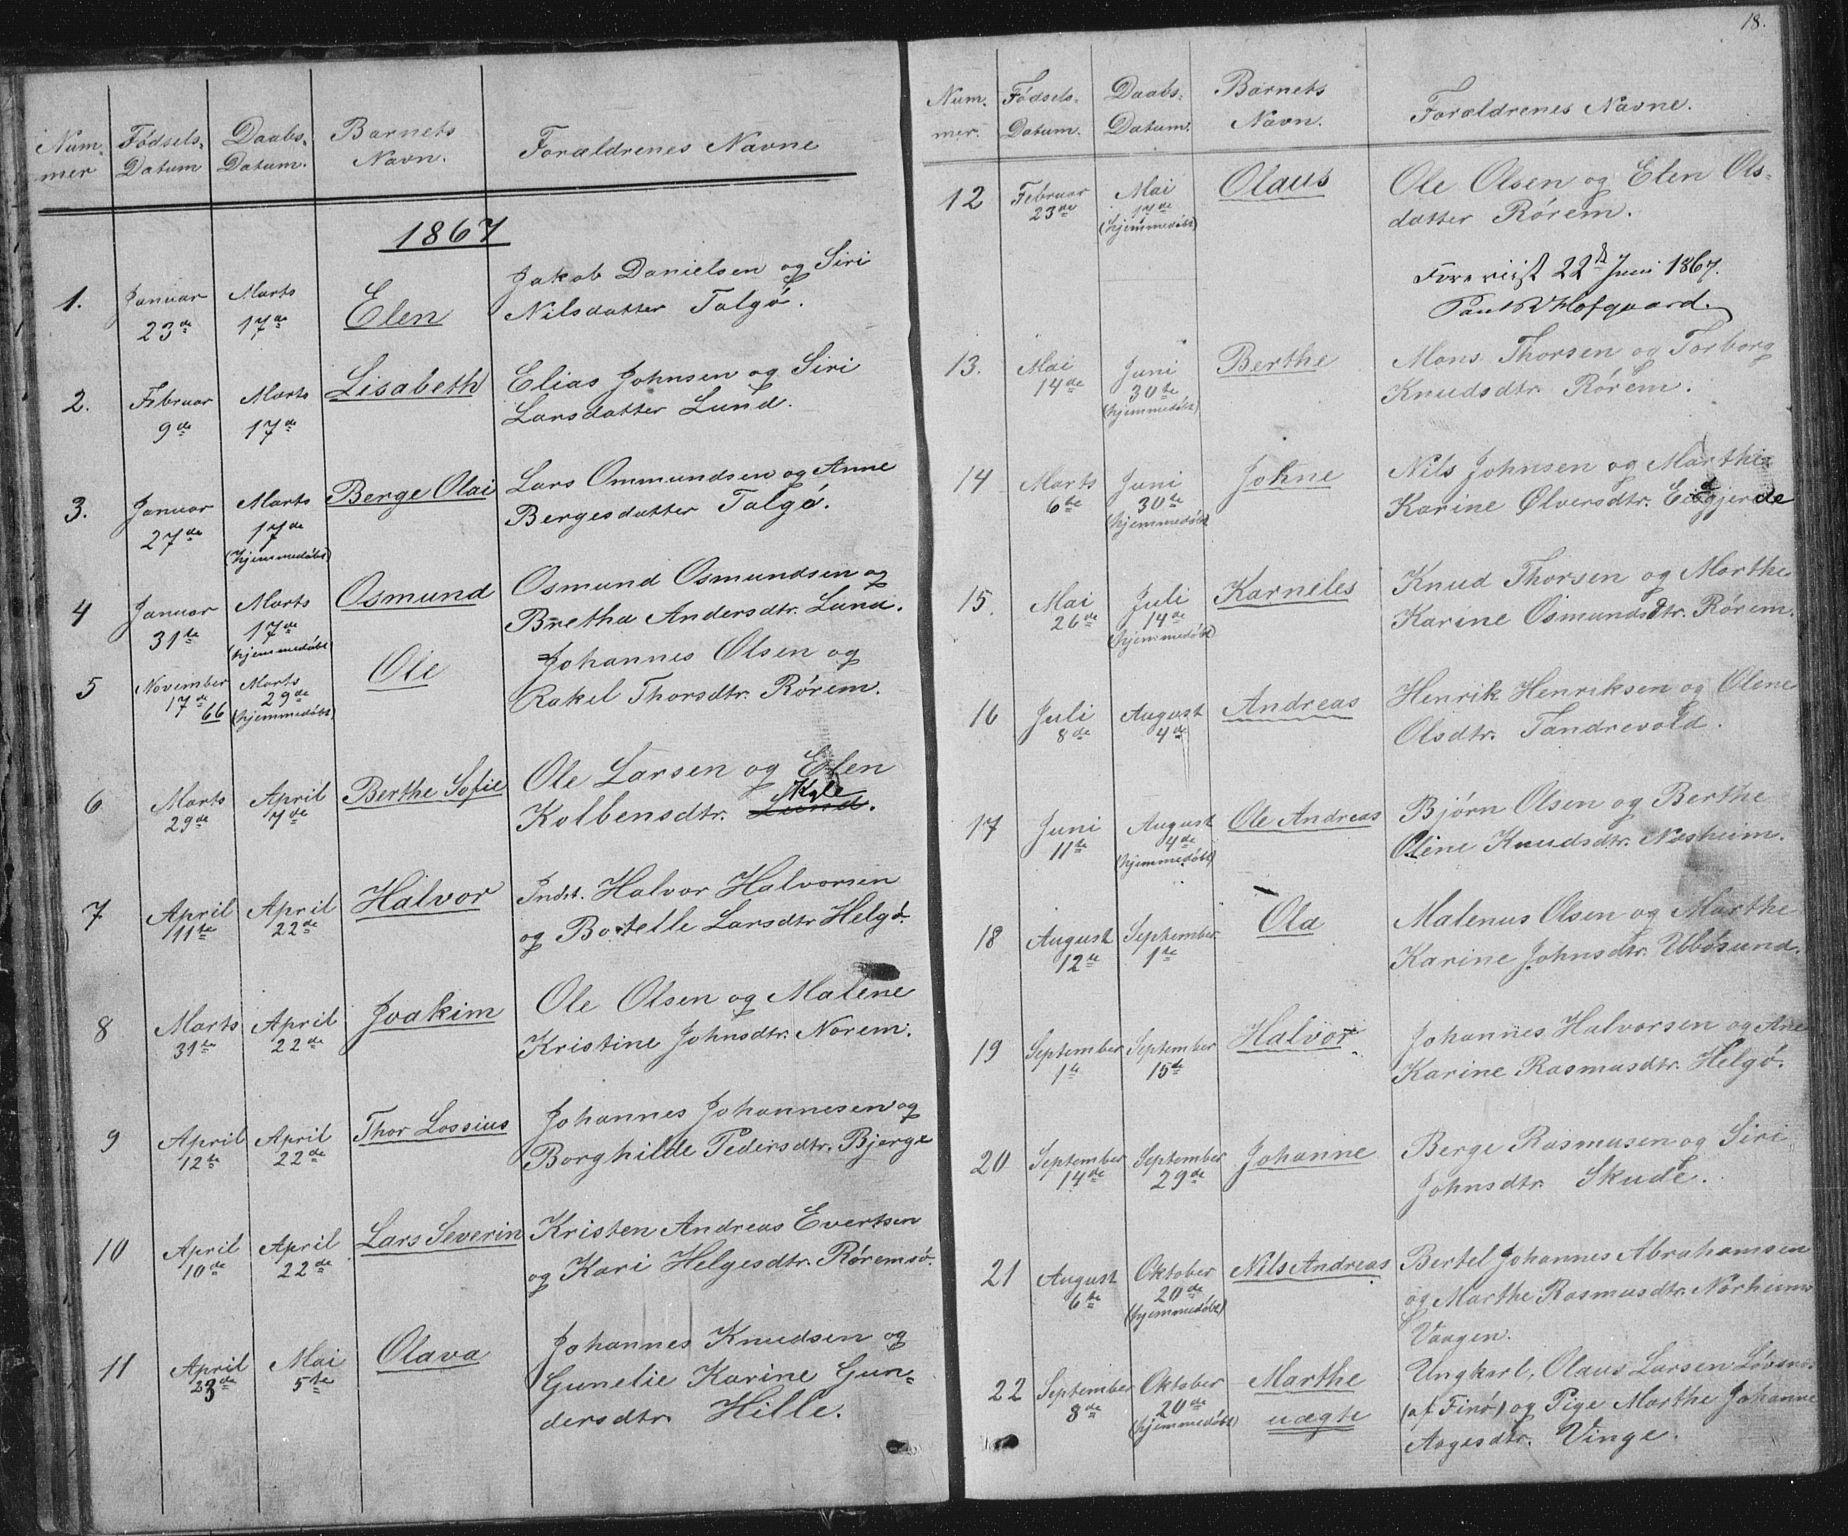 Num-mer Fødsels-Datum Daabs-Datum. Barnets Navn. Forældrenes Navne
1867
1. Januar 23de Marts 17de Elen Jakob Danielsen og Siri
Nilsdatter Talgø.
2. Februar 9de Marts 17de Lisabeth Elias Johnsen og Siri
Larsdatter Lund.
3. Januar 27de Marts 17de (hjemmedøbt) Berge Olai Lars Ommundsen og Anne
Bergesdatter Talgø.
4 Januar 31te Marts 17de (hjemmedøbt) Osmund Osmund Osmundsen og
Bretha Andersdtr. Lund.
5 November 17de 66 Marts 29de (hjemmedøbt) Ole Johannes Olsen og
Rakel Thorsdtr. Rørem.
6 Marts 29de April 7de Berthe Sofie Ole Larsen og Elen
Kolbensdtr. Lund. Kyle
7 April 11te April 22de Halvor Indst. Halvor Halvorsen
og Bortelle Larsdtr Helgø.
8 Marts 31te April 22de Joakim Ole Olsen og Malene
Kristine Johnsdtr. Norem.
9 April 12te April 22de Thor Lossius Johannes Johannesen og
Borghilde Pedersdtr. Bjerge
10 April 10de April 22de Lars Severin Kristen Andreas Evertsen
og Kari Helgesdtr. Røremsø.
11 April 23de Mai 5te Olava Johannes Knudsen og
Gunelie Karine Gun-
dersdtr. Hille.
18.
Num-mer. Fødsels-Datum. Daabs-Datum. Barnets Navn. Forældrenes Navne.
12 Februar 23de Mai 17de (hjemmedøbt) Olaus Ole Olsen og Elen Ols-
datter Rørem.
Forevist 22de Juni 1867.
Paul R Hofgaard.
13. Mai 14de Juni 30te (hjemmedøbt) Berthe Mons Thorsen og Torborg
Knudsdtr. Rørem.
14 Marts 6te Juni 30te (hjemmedøbt) Johne Nils Johnsen og Marthe
Karine Ølversdtr. Eidgjerde
15. Mai 26de Juli 14de (hjemmedøbt) Karneles Knud Thorsen og Marthe
Karine Osmundsdtr. Rørem.
16 Juli 8de August 4de Andreas Henrik Henriksen og Oline
Olsdtr. Tandrevold.
17 Juni 11te August 4de (hjemmedøbt) Ole Andreas Bjørn Olsen og Berthe
Oline Knudsdtr. Næsheim.
18 August 12te September 1te Ola Malenus Olsen og Marthe
Karine Johnsdtr. Ubøsund.
19 September 1te September 15de Halvor Johannes Halvorsen og Ane
Karine Rasmusdtr. Helgø.
20 September 14de September 29de Johanne Berge Rasmusen og Siri
Johnsdtr. Skude.
21 August 6te Oktober 20de (hjemmedøbt) Nils Andreas Bertel Johannes Abrahamsen
og Marthe Rasmusdtr. Nørheims
Vaagen.
22 September 8de Oktober 20de (hjemmedøbt) Marthe uægte Ungkarl, Olaus Larsen
(af Finø) og Pige Marthe Johanne
Aagesdtr. Vinge.